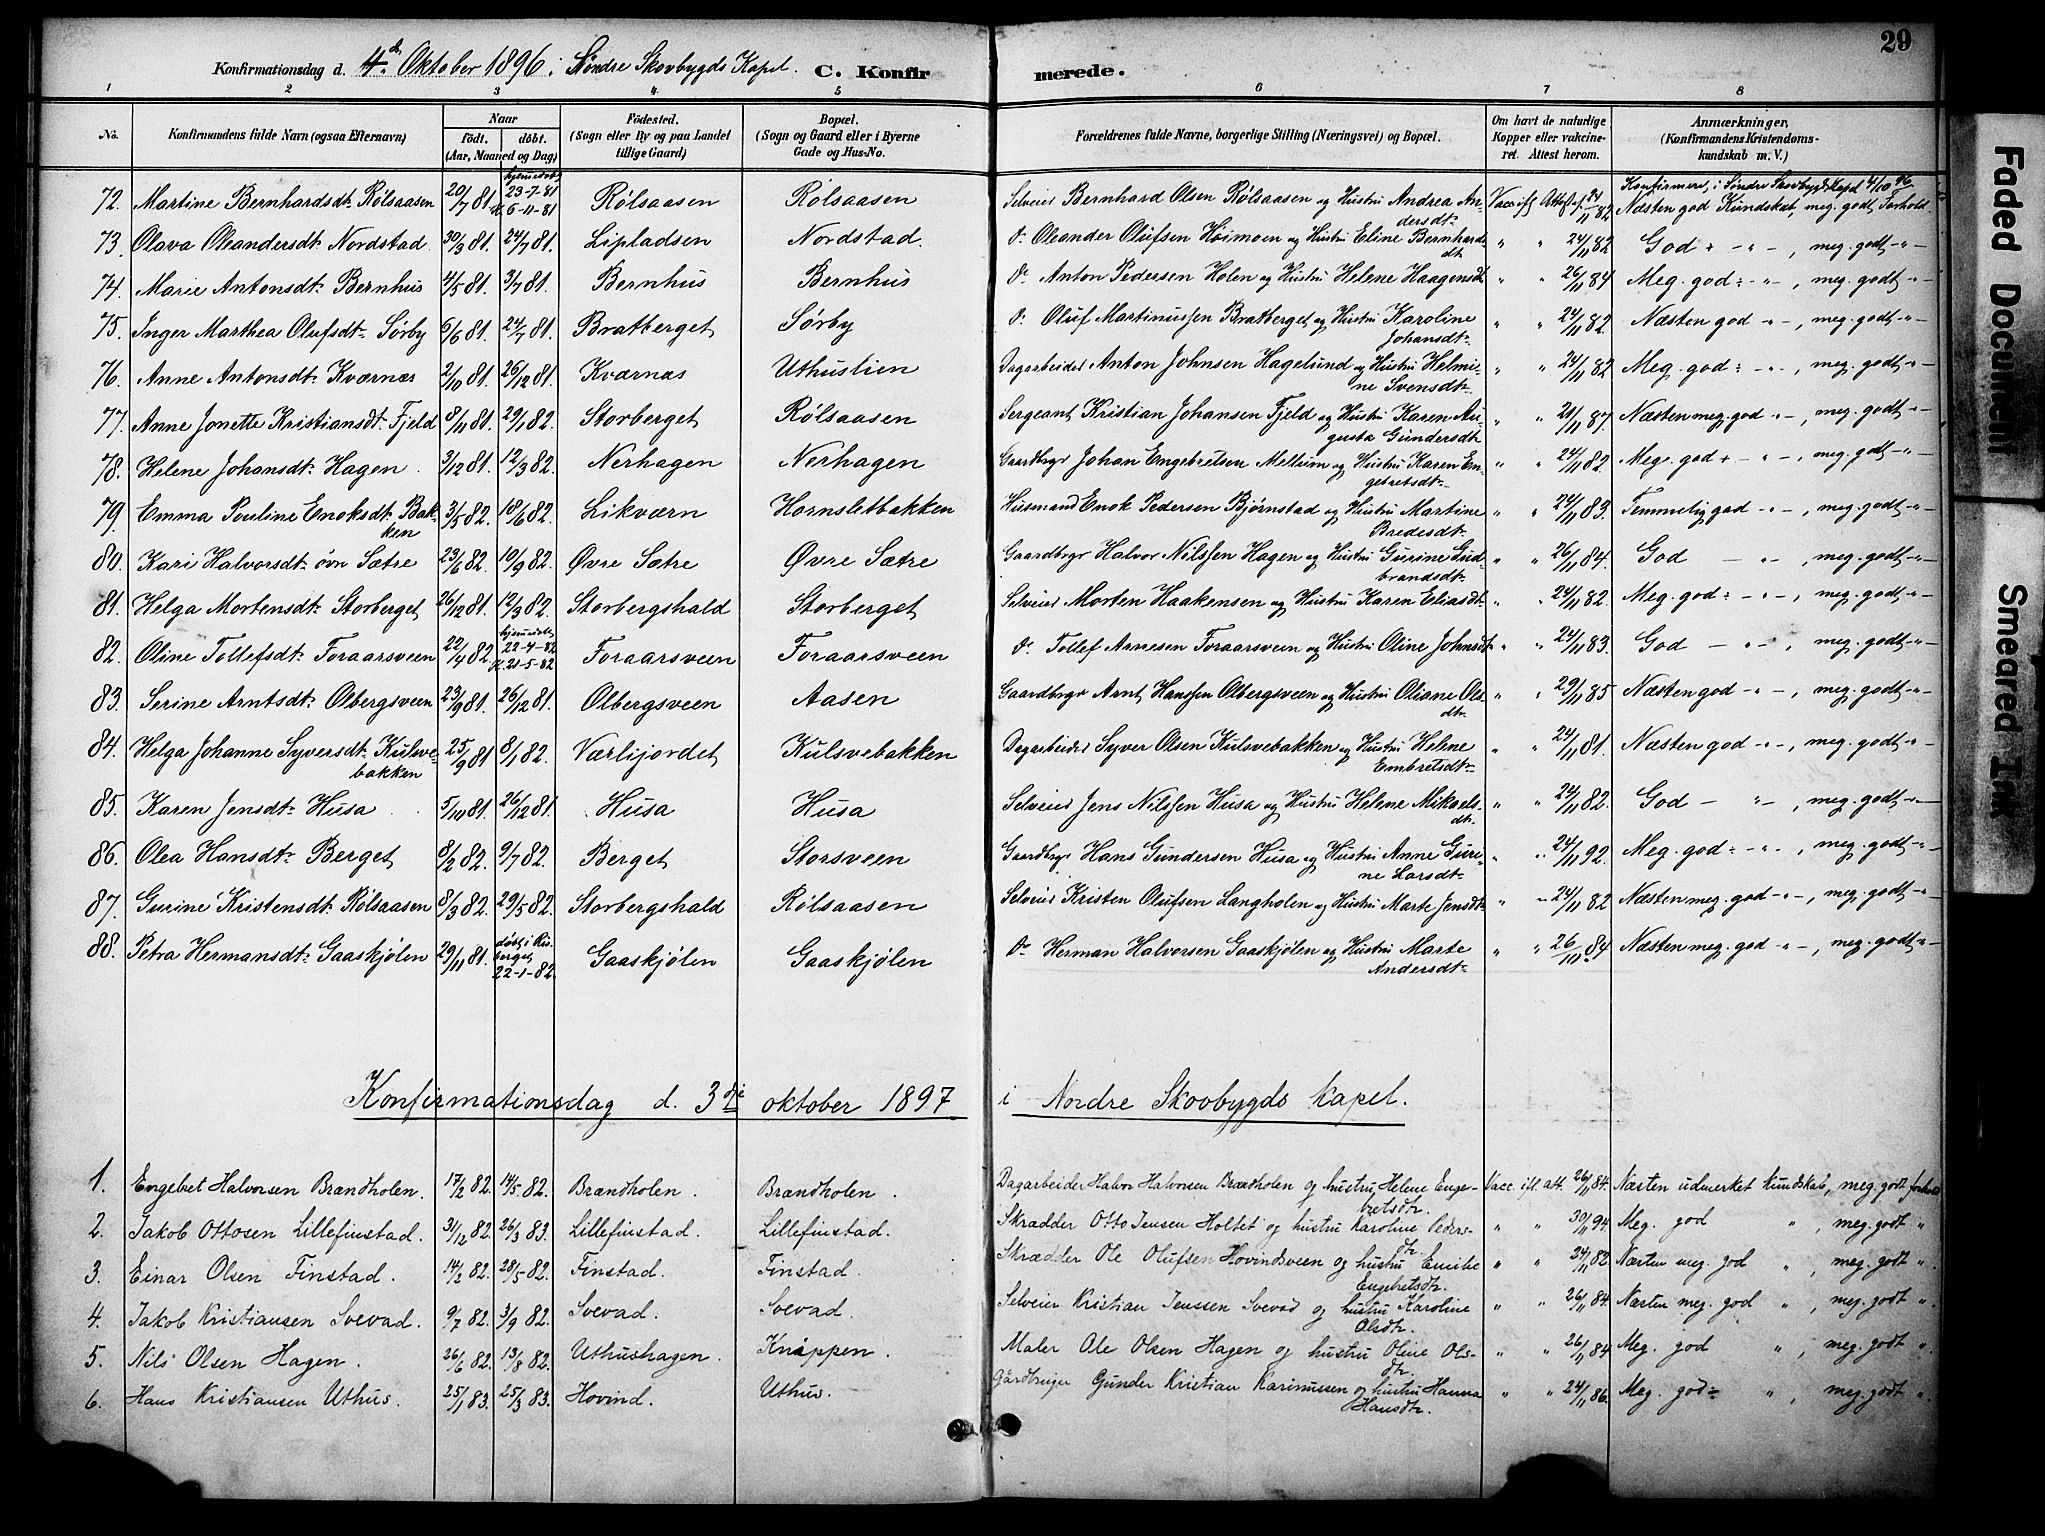 29
Konfirmationsdag d. 4de Oktober 1896 i Søndre Skovbygds Kapel. C. Konfirmerede.
1 2 3 4 5 6 7 8
No. Konfirmandens fulde Navn (ogsaa Efternavn) Naar født. døbt. (Aar, Maaned og Dag) Fødested. (Sogn eller By og paa Landet tillige Gaard) Bopæl. (Sogn og Gaard eller i Byerne Gade og Hus-No. Forældrenes fulde Navne, borgerlige Stilling (Næringsvei) og Bopæl. Om havt de naturlige Kopper eller vakcineret. Attest herom. Anmærkninger, (Konfirmandens Kristendomskundskab m. V.)
Konfirmere, i Søndre Skovbygds Kapel 4/10 96
72. Martine Bernhardsdt. Rølsaasen 20/7 81. hjemmedøbt 23-7-81 K. 6-11-81 Rølsaasen Rølsaasen Selveier Bernhard Olsen Rølsaasen og Hustru Andrea Andersdt. Vacc. ifl. Attest af 24/11 82 Næsten god Kundskab, meg. godt Forhold
73. Olava Oleandersdt. Nordstad. 30/3 81. 24/7 81. Lipladsen Nordstad. Do Oleander Olufsen Høimoen og Hustru Eline Bernhardsdt. " " 24/11 82 God - " -, meg. godt - " -
74. Marie Antonsdt. Bernhus 4/5 81. 3/7 81. Bernhus Bernhus Do Anton Pedersen Holen og Hustru Helene Haagensdt. " " 26/11 84 Meg. god - " -, meg. godt - " -
75. Inger Marthea Olufsdt. Sørby 6/6 81. 24/7 81. Bratberget Sørby Do Oluf Martinussen Bratberget og Hustru Karoline Johansdt. " " 24/11 82. Næsten god - " -, meg. godt - " -
76. Anne Antonsdt. Kværnæs 2/10 81. 26/12 81. Kværnæs Uthuslien Dagarbeider Anton Johnsen Hagelund og Hustru Helmine Svensdt. " " 24/11 82 Meg. god - " -, meg. godt - " -
77. Anne Jonette Kristiansdt. Fjeld 8/11 81. 29/1 82. Storberget Rølsaasen Sergeant Kristian Johansen Fjeld og Hustru Karen Augusta Gundersdt. " " 21/11 87. Næsten meg. god - " -, meg. godt - " -
78. Helene Johansdt. Hagen 3/12 81. 12/3 82. Nerhagen Nerhagen Gaardbrgr Johan Engebretsen Mellum og Hustru Karen Emgebretsdt. " " 24/11 82. Meg. god - " -, meg. godt - " -
79. Emma Pouline Enoksdt. Bakken 3/5 82. 18/6 82. Likværn Hornsletbakken Husmand Enok Pedersen Bjørnstad og Hustru Martine Bredesdt. " " 24/11 83. Temmelig god - " -, meg. godt - " -
80. Kari Halvorsdt. øvr. Sætre 23/6 82. 10/9 82. Øvre Sætre Øvre Sætre Gaardbrgr Halvor Nilssen Hagen og Hustru Gurine Gudbrandsdt. " " 26/11 84. God - " -, meg. godt - " -
81. Helga Mortensdt. Storberget 26/12 81. 12/3 82. Storbergshald Storberget Selveier Morten Haakensen og Hustru Karen Eliasdt. " " 24/11 82. Meg. god - " -, meg. godt - " -
82. Oline Tollefsdt. Foraarsveen 22/4 82 hjemmedøbt 22-4-82 K. 21-5-82 Foraarsveen Foraarsveen Do Tollef Arnesen Foraarsveen og Hustru Oline Johnsdt. " " 24/11 83. God - " -, meg. godt - " -
83. Serine Arntsdt. Olbergsveen 23/9 81. 26/12 81. Olbergsveen Aasen Gaardbrgr Arnt Hanssen Olbergsveen og Hustru Oliane Olsdt. " " 29/11 85 Næsten god - " -, meg. godt - " -
84. Helga Johanne Syversdt. Kulsvebakken 25/9 81 8/1 82. Værlijordet Kulsvebakken Dagarbeider Syver Olsen Kulsvebakken og Hustru Helene Embretsdt. " " 24/11 81. Næsten god - " -, meg. godt - " -
85. Karen Jensdt. Husa 5/10 81. 26/12 81. Husa Husa Selveier Jens Nilssen Husa og Hustru Helene Mikaelsdt. " " 24/11 82. God - " -, meg. godt - " -
86. Olea Hansdt. Berget 8/2 82. 9/7 82. Berget Storsveen Gaardbrgr Hans Gundersen Husa og Hustru Anne Gurine Larsdt. " " 24/11 92. Meg. god - " -, meg. godt - " -
87. Gurine Kristensdt. Rølsaasen 8/3 82. 29/5 82. Storbergshald Rølsaasen Selveier Kristen Olufsen Langholen og Hustru Marte Jensdt. " " 24/11 82 Næsten meg. god - " -, meg. godt - " -
88. Petra Hermansdt. Gaaskjølen 29/11 81. døbt i Risberget 22-1-82 Gaaskjølen Gaaskjølen Do Herman Halvorsen Gaaskjølen og Hustru Marte Andersdt. " " 26/11 84 Næsten meg. god - " -, meg. godt - " -
Konfirmationsdag d. 3die oktober 1897 i Nordre Skovbygds kapel.
1. Engebret Halvorsen Brændholen. 17/2 82. 14/5 82. Brændholen. Brændholen. Dagarbeider Halvor Halvorsen Brændholen og hustru Helene Engebretsdtr. Vacc. ifl. att. 26/11 84. Næsten udmerket kundskab, meg. godt forhold
2. Jakob Ottosen Lillefinstad. 31/12 82. 26/3 83. Lillefinstad. Lillefinstad. Skrædder Otto Jensen Holtet og hustru Karoline Pedersdtr. " " 30/11 94. Meg. god ", meg. godt "
3. Einar Olsen Finstad. 14/2 82. 28/5 82. Finstad. Finstad. Skrædder Ole Olufsen Hovindsveen og hustru Emilie Engebretsdtr. " " 24/11 82. Næsten meg. god ", meg. godt "
4. Jakob Kristiansen Svevad. 9/7 82. 3/9 82. Svevad. Svevad. Selveier Kristian Jenssen Svevad og hustru Karoline Olsdtr. " " 26/11 84. Næsten meg. god ", meg. godt "
5. Nils Olsen Hagen. 26/6 82. 13/8 82. Uthushagen. Knappen. Maler Ole Olsen Hagen og hustru Oline Olsdtr. " " 26/11 84 Meg. god ", meg. godt "
6. Hans Kristiansen Uthus. 25/1 83. 25/3 83. Hovind. Uthus. Gårdbruger Gunder Kristian Karinussen og hustru Hanna Hansdtr. " " 24/11 86. Meg. god ", meg. godt "
Faded Document
Smeared Ink